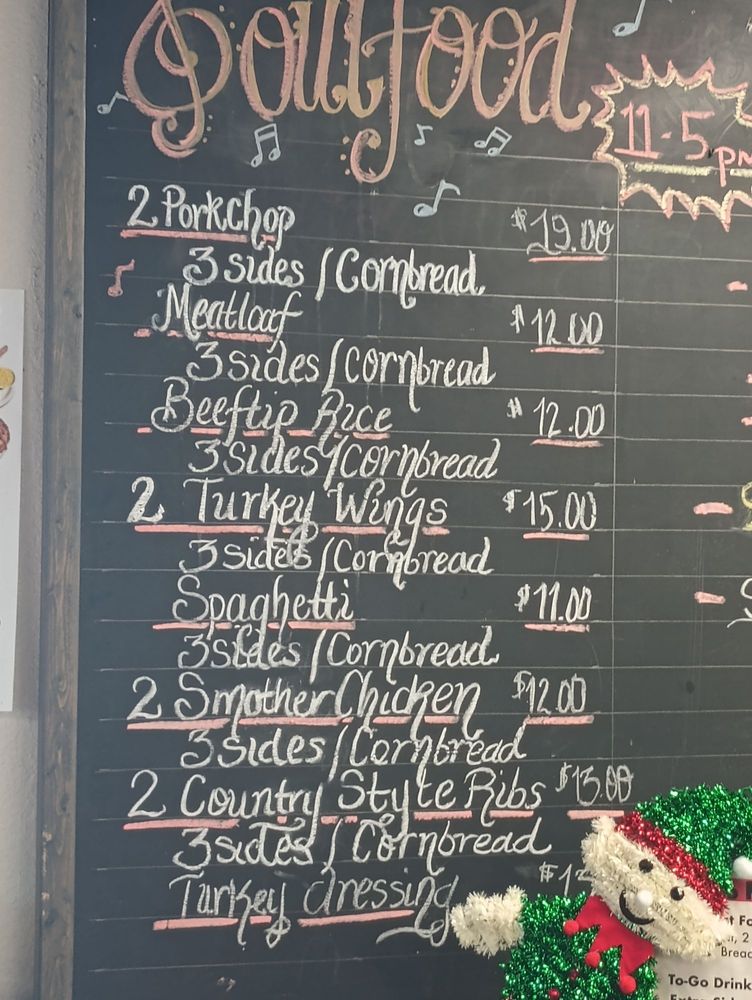 Soulfood
11-5 pm
2 Porkchop $19.00
3 sides / Cornbread
Meatloaf $12.00
3 sides / Cornbread
Beeftip Rice $12.00
3 sides / Cornbread
2 Turkey Wings $15.00
3 sides / Cornbread
Spaghetti $11.00
3 sides / Cornbread
2 Smother Chicken $12.00
3 sides / Cornbread
2 Country Style Ribs
3 sides / Cornbread
Turkey dressing
To-Go Drink